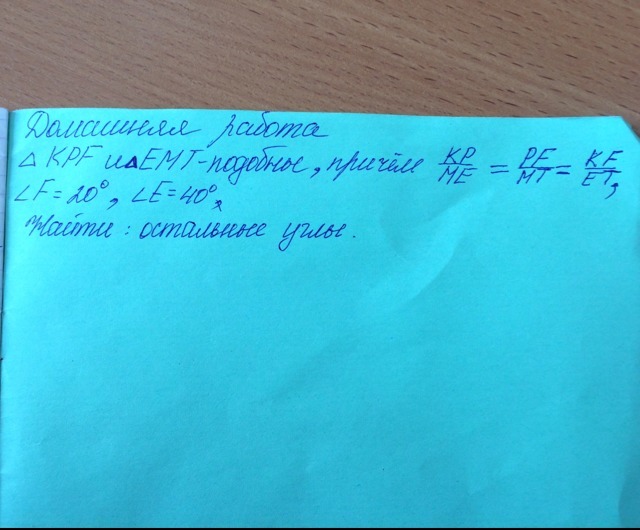 Домашняя работа
△ KPF и △ EMT - подобные, причём KP/ME = PF/MT = KF/ET,
∠F = 20°, ∠E = 40°,
Найти: остальные углы.